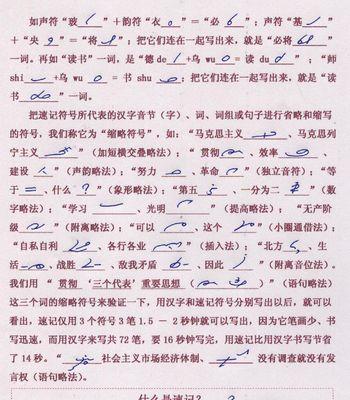 如声符“玻 ”+韵符“衣 ”=“必 ”；声符“基 ”
+“央 ”=“将 ”；把它们连在一起写出来，就是“必将 
”一词。再如“读书”一词，是“德 de +乌 wu = 读 du ”；“师
shi +乌 wu = 书 shu ；把它们连在一起写出来，就是“读
书 ”一词。
把速记符号所代表的汉字音节（字）、词、词组或句子进行省略和缩写
的符号，我们称它为“缩略符号”，如：“马克思主义 、马克思列
宁主义 ”（加短横交叠略法）；“贯彻 、效率 、
建设 ”（声韵略法）；“努力 、革命 ”（独立音符）；“等
于 、什么 ？”（象形略法）；“第五 、一分为二 ”（数
字略法）；“学习 、光明 ”（提高略法）；“无产阶
级 ”（附离略法）；“可以 、这个 ”（小圈通借法）；
“自私自利 、各行各业 ”（插入法）；“北方 、生
活 、战胜 、敌我矛盾 、因此 ”（附离音位法）。
我们用“贯彻‘三个代表’重要思想（ ）”（语句略法）
这三个词的缩略符号来验证一下，用汉字和速记符号分别写出以后，就可以
看出，速记仅用3个符号3笔1.5 － 2秒钟就可以写出，因为它笔画少、书
写迅速，而用汉字来写共72笔，要16秒钟写完，用速记比用汉字书写节省
了14秒。“ 社会主义市场经济体制、 没有调查就没有发
言权（语句略法）。
什么是速记？